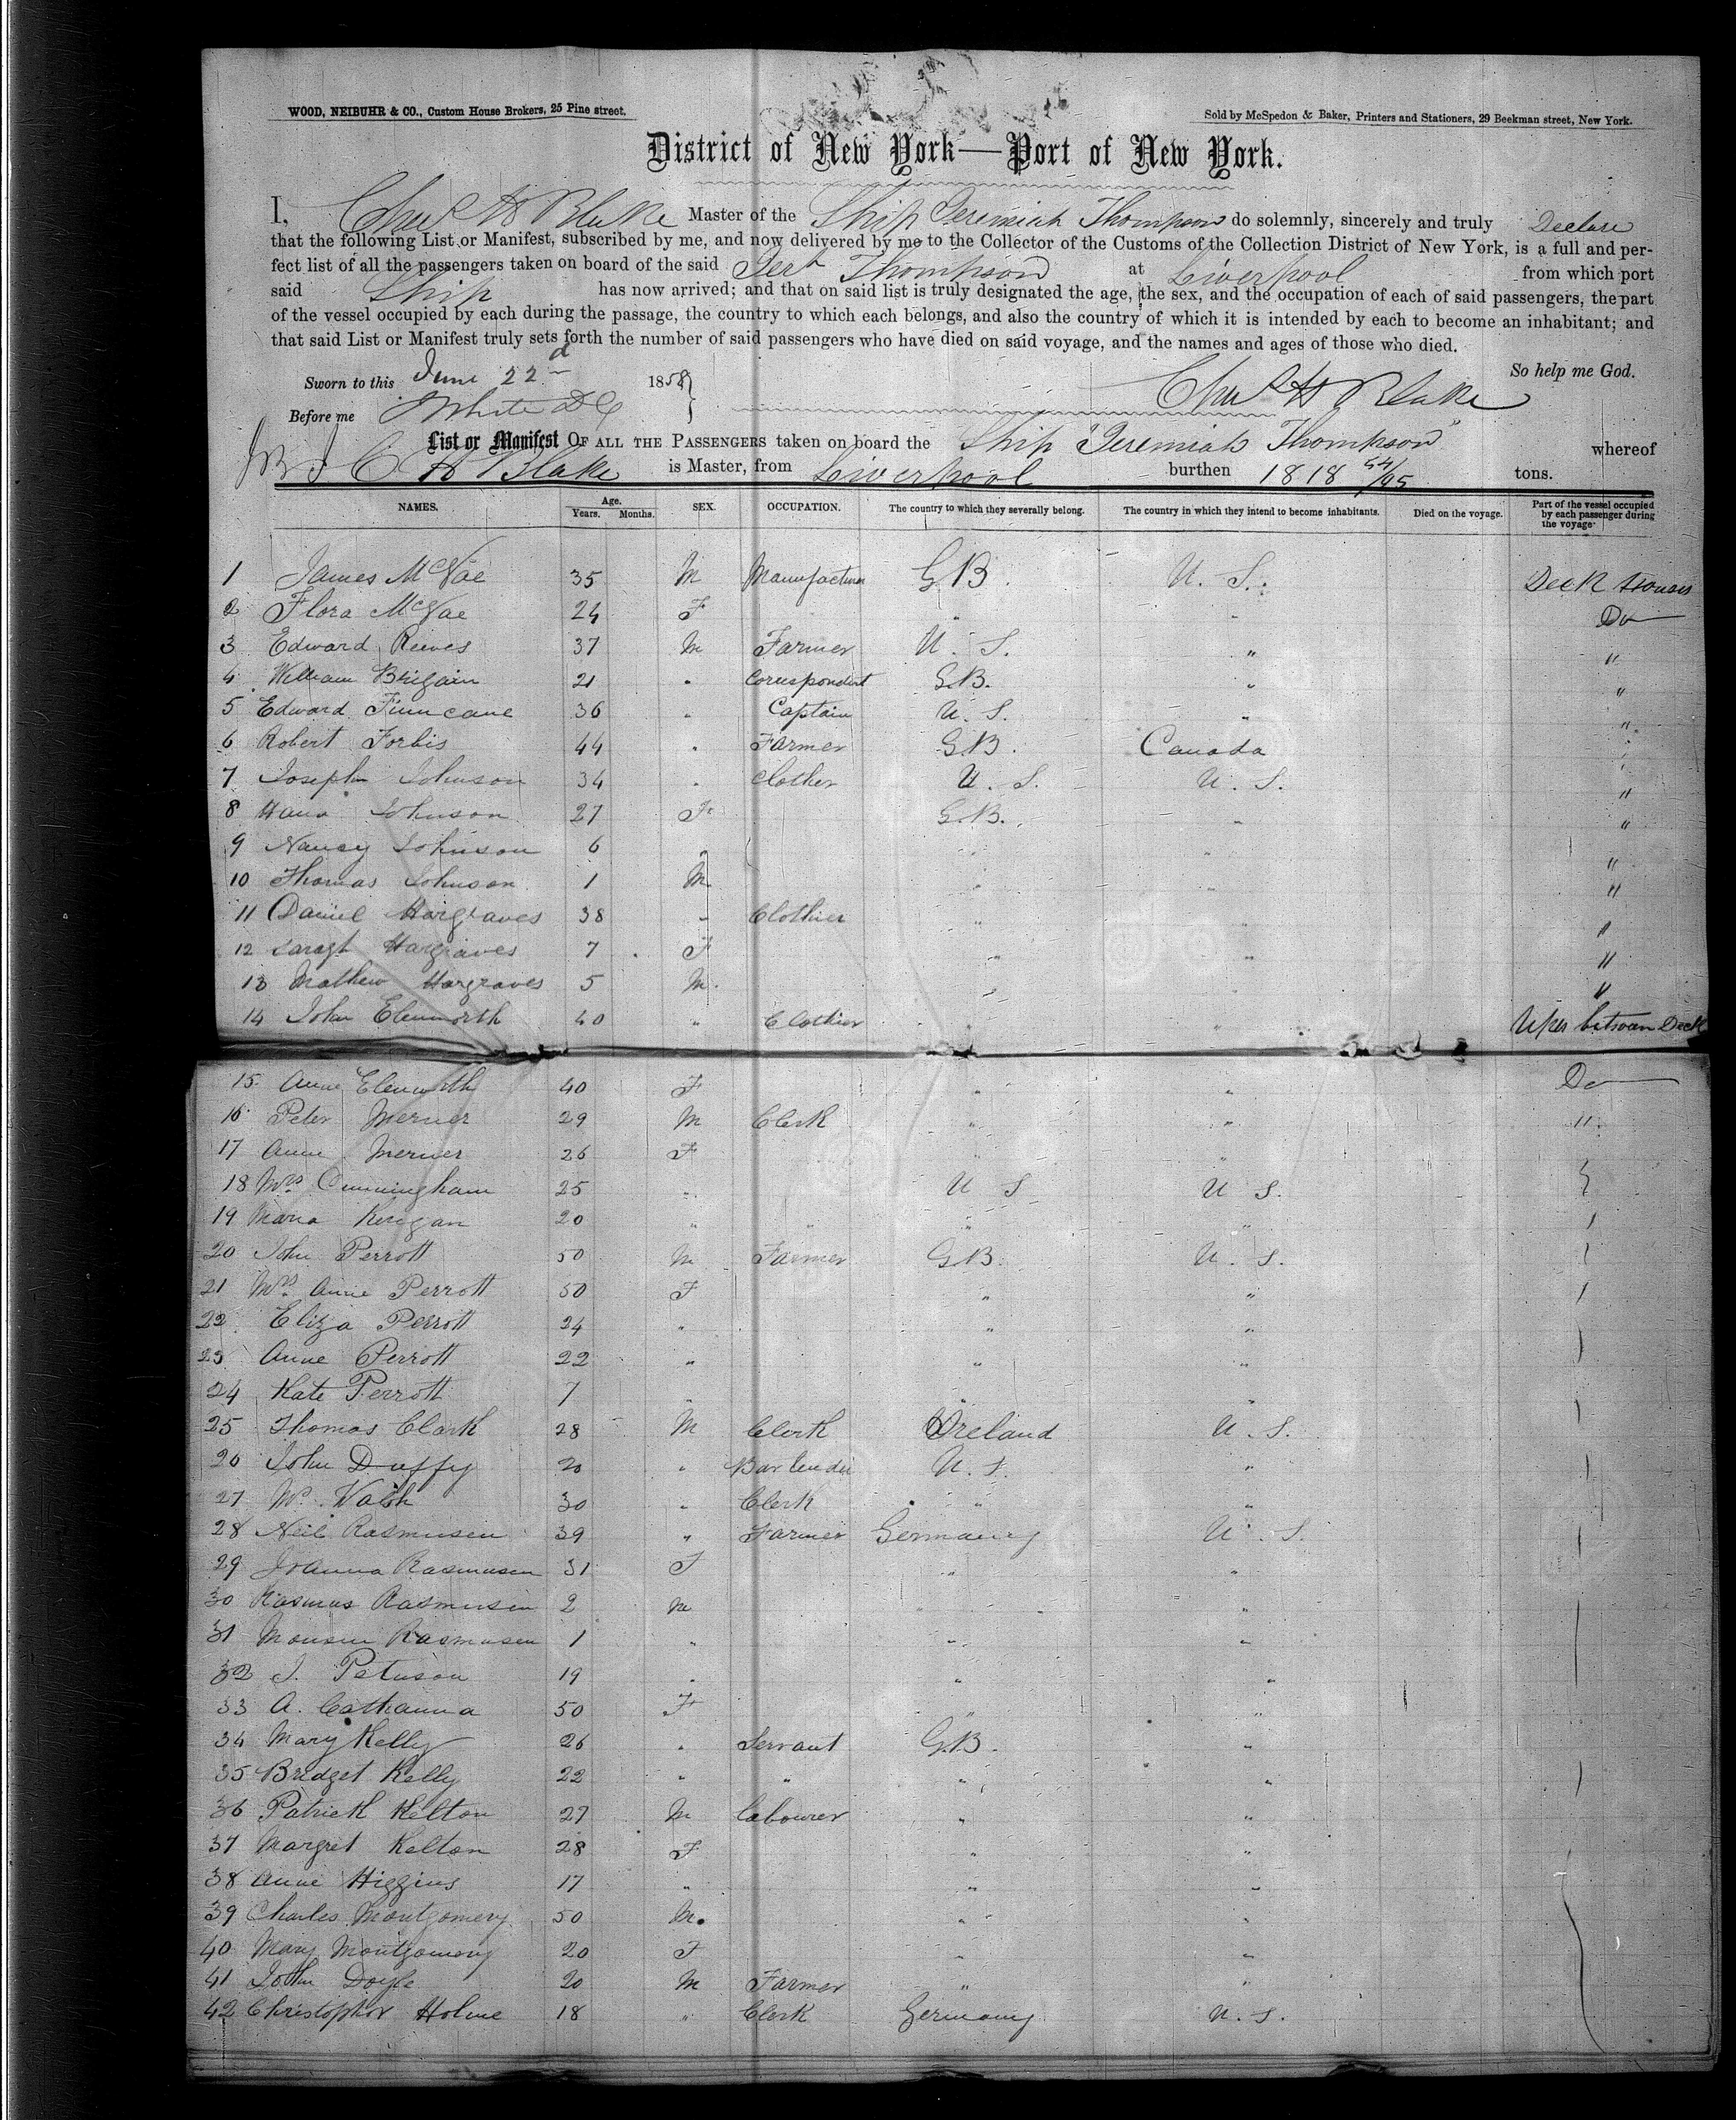 WOOD, NEIBUHR & CO., Custom House Brokers, 25 Pine street.
Sold by McSpedon & Baker, Printers and Stationers, 29 Beekman street, New York.
District of New York—Port of New York.
I, Chas H Blake Master of the Ship Jeremiah Thompson do solemnly, sincerely and truly Declare
that the following List or Manifest, subscribed by me, and now delivered by me to the Collector of the Customs of the Collection District of New York, is a full and per-
fect list of all the passengers taken on board of the said Jerh Thompson at Liverpool from which port
said Ship has now arrived; and that on said list is truly designated the age, the sex, and the occupation of each of said passengers, the part
of the vessel occupied by each during the passage, the country to which each belongs, and also the country of which it is intended by each to become an inhabitant; and
that said List or Manifest truly sets forth the number of said passengers who have died on said voyage, and the names and ages of those who died.
So help me God.
Sworn to this June 22d 1858
Chas H Blake
Before me White DC
List or Manifest OF ALL THE PASSENGERS taken on board the Ship "Jeremiah Thompson" whereof
C H Blake is Master, from Liverpool burthen 1818 54/95 tons.
NAMES. Age. Years. Months. SEX. OCCUPATION. The country to which they severally belong. The country in which they intend to become inhabitants. Died on the voyage. Part of the vessel occupied by each passenger during the voyage
1 James McVae 35 M Manufacturer G.B. U. S. Deck Houses
2 Flora McVae 24 F " " Do
3 Edward Reeves 37 M Farmer U. S. " "
4 William Brigain 21 " Corespondent G.B. " "
5 Edward Finncane 36 " Captain U. S. " "
6 Robert Forbis 44 " Farmer G.B. Canada "
7 Joseph Johnson 34 " Clother U. S. U. S. "
8 Hana Johnson 27 F G.B. " "
9 Nancy Johnson 6 " " " "
10 Thomas Johnson 1 M " " "
11 Daniel Hargraves 38 " Clothier " " "
12 Saragh Hargraves 7 F " " "
13 Mathew Hargraves 5 M " " "
14 John Elenworth 40 " Clothier " " Uper between Deck
15 Anne Elenworth 40 F " " Do
16 Peter Merner 29 M Clerk " " "
17 Anne Merner 26 F " "
18 Mrs. Cunningham 25 " U S U S.
19 Maria Kerigan 20 " " " "
20 John Perrott 50 M Farmer G.B. U. S.
21 Mrs. Anne Perrott 50 F " "
22 Eliza Perrott 24 " " "
23 Anne Perrott 22 " " "
24 Kate Perrott 7 " " "
25 Thomas Clark 28 M Clerk Ireland U. S.
26 John Duffy 20 " Bar tender U. S. "
27 Mr. Walsh 30 " Clerk " "
28 Neil Rasmusen 39 " Farmer Germany U. S.
29 Joanna Rasmusen 31 F " "
30 Rasmus Rasmusen 2 M " "
31 Rasmusen 1 " " "
32 J. Peterson 19 " " "
33 A. Cathanna 50 F " "
34 Mary Kelly 26 " Servant G.B. "
35 Bridget Kelly 22 " " " "
36 Patrick Kelton 27 M Labourer " "
37 Margret Kelton 28 F " "
38 Anne Higgins 17 " " "
39 Charles Montgomery 50 M. " "
40 Mary Montgomery 20 F " "
41 John Doyle 20 M Farmer " "
42 Christopher Holme 18 " Clerk Germany U. S.